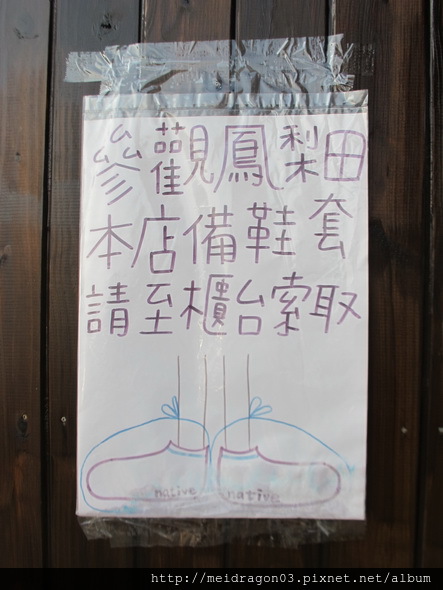 參觀鳳梨田
本店備鞋套
請至櫃台索取
native native
http://meidragon03.pixnet.net/album